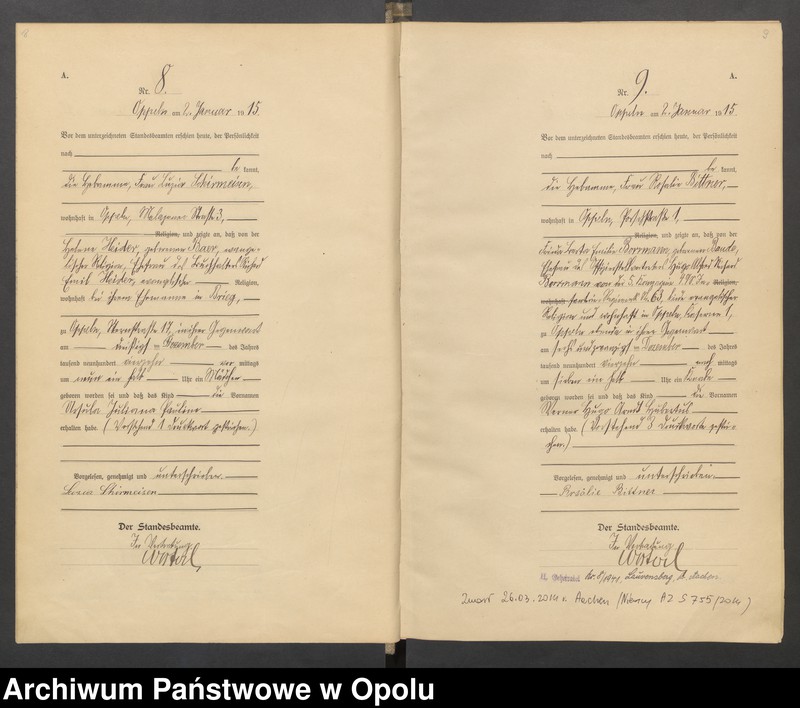 A.
Nr. 8.
Oppeln am 2. Januar 1915.
Vor dem unterzeichneten Standesbeamten erschien heute, der Persönlichkeit
nach
be kannt,
die Hebamme, Frau
wohnhaft in Oppeln, Malapaner Straße 3,
Religion, und zeigte an, daß von der
Helene Heider, geborenen Baer, evange-
lischer Religion, Ehefrau des Buchhalters
Emil Heider, evangelischer Religion,
wohnhaft bei ihrem Ehemanne in Brieg,
zu Oppeln, Sternstraße 17, in ihrer Gegenwart
am dreißigsten Dezember des Jahres
tausend neunhundert vierzehn vor mittags
um neun ein halb Uhr ein Mädchen
geboren worden sei und daß das Kind die Vornamen
Ursula Juliana Pauline
erhalten habe. (Vorstehend 1 Druckwort gestrichen.)
Vorgelesen, genehmigt und unterschrieben
Der Standesbeamte.
In Vertretung
9
A.
Nr. 9.
Oppeln am 2. Januar 1915
Vor dem unterzeichneten Standesbeamten erschien heute, der Persönlichkeit
nach
be kannt,
die Hebamme, Frau Rosalie Bittner,
wohnhaft in Oppeln, 1,
Religion, und zeigte an, daß von der
Emilie Borrmann, geborenen
Ehefrau des Hugo Alfred Richard
Borrmann von der 5. Kompagnie Religion,
wohnhaft Regiment No. 63, evangelischer
Religion und wohnhaft in Oppeln, Kaserne 1,
zu Oppeln ebenda in ihrer Gegenwart
am sechs und zwanzigsten Dezember des Jahres
tausend neunhundert vierzehn nach mittags
um sieben ein halb Uhr ein Knabe
geboren worden sei und daß das Kind die Vornamen
Werner Hugo Arndt Hubertus
erhalten habe. (Vorstehend 3 Druckworte gestri-
chen.)
Vorgelesen, genehmigt und unterschrieben
Rosalie Bittner
Der Standesbeamte.
In Vertretung
Laurensberg, Aachen
Zmarł 26.03.2014 r. Aachen (Niemcy AZ S 755/2014)
Archiwum Państwowe w Opolu